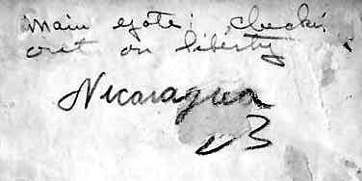 Main gate: checkin
out on liberty
Nicaragua
23